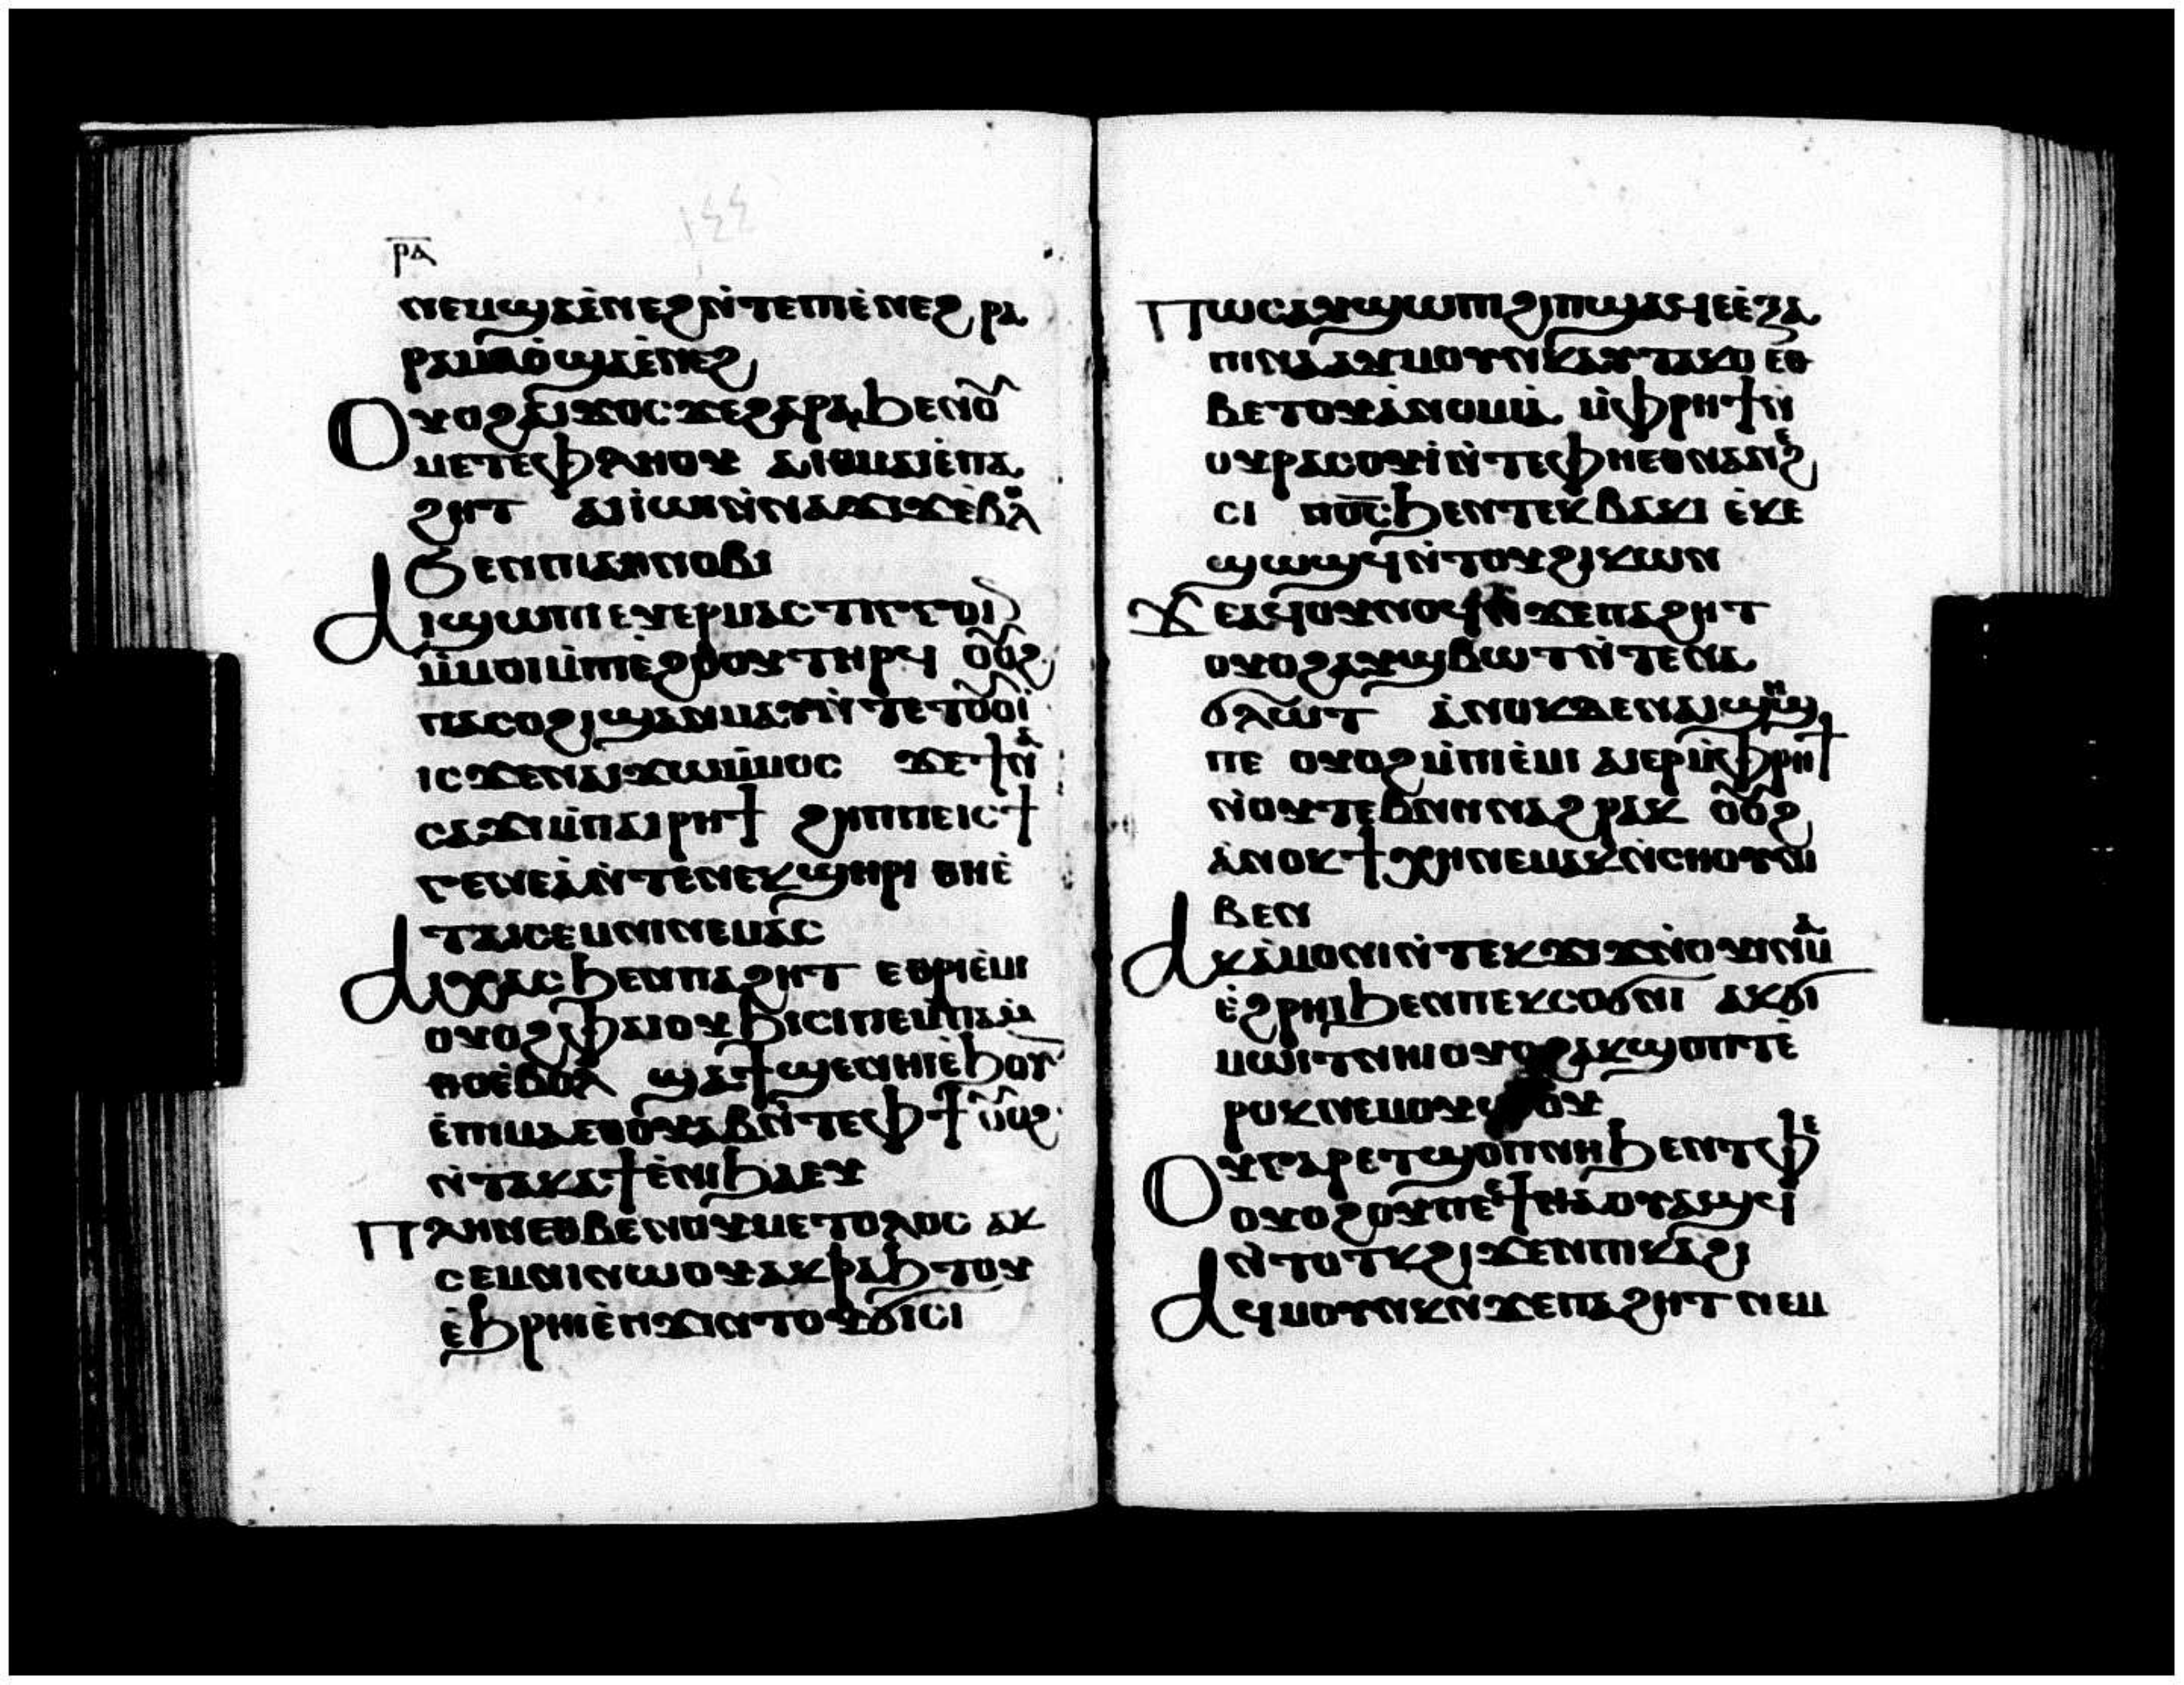 ١٤٤
ⲣⲁ
ⲛⲉⲙϣⲁⲉ̀ⲛⲉϩⲛ̀ⲧⲉⲡⲓⲉ̀ⲛⲉϩ ⲣⲁ
ⲣⲁⲙⲁⲟ̀ϣⲁⲉ̀ⲛⲉϩ
Ⲟⲩⲟϩⲁⲓϫⲟⲥϫⲉϩⲁⲣⲁϧⲉⲛⲟ̂
ⲙⲉⲧⲉⲫⲗⲏⲟⲩ ⲁⲓⲑⲙⲁⲓⲉ̀ⲡⲁ
ϩⲏⲧ ⲁⲓⲓⲱⲓⲛ̀ⲛⲁϫⲓϫⲉ̀ⲃⲗ
ϧⲉⲛⲡⲓⲁⲑⲛⲟⲃⲓ
Ⲁⲓϣⲱⲡⲓⲉⲩⲉⲣⲙⲁⲥⲧⲓⲅⲅⲟⲓⲛ
ⲙ̀ⲙⲟⲓⲙ̀ⲡⲓⲉϩⲟⲟⲩⲧⲏⲣϥ ⲟ̂ⲟ̂ϩ
ⲡⲁⲥⲟϩⲓϣⲁⲛⲙⲁⲩⲛ̀ⲧⲉⲧⲟ̂ⲟ̂ⲓ
ⲓⲥϫⲉⲛⲁⲓϫⲱⲙ̀ⲙⲟⲥ ϫⲉϯⲛⲁ
ⲥⲁϫⲓⲙ̀ⲡⲁⲓⲣⲏϯ ϩⲏⲡⲡⲉⲓⲥϯ
ⲅⲉⲛⲉⲁ̀ⲛ̀ⲧⲉⲛⲉⲕϣⲏⲣⲓ ⲑⲏⲉ̀
ⲧⲁⲓⲥⲉⲙⲛⲓⲛⲉⲙⲁⲥ
Ⲁⲓⲭⲁⲥϧⲉⲛⲡⲁϩⲏⲧ ⲉⲑⲣⲓⲉ̀ⲙⲓ
ⲟⲩⲟϩⲫⲁⲓⲟⲩϧⲓⲥⲓⲡⲉⲙ̀ⲡⲁⲙ̀
ⲑⲟⲉ̀ⲃⲟⲗ ϣⲁϯϣⲉⲛⲏⲓⲉ̀ϧⲟⲩⲛ
ⲉ̀ⲡⲓⲙⲁⲉⲑⲟⲩⲁⲃⲛ̀ⲧⲉⲫϯ ⲟ̂ⲟ̂ϩ
ⲛ̀ⲧⲁⲕⲁϯⲉ̀ⲛⲓϧⲁⲉⲩ
Ⲡⲗⲏⲛⲉⲑⲃⲉⲛⲟⲩⲙⲉⲧⲟⲗⲟⲥ ⲁⲕ
ⲥⲉⲙⲛⲓⲛⲱⲟⲩⲁⲕⲣⲁϧⲧⲟⲩ
ⲉ̀ϧⲣⲏⲓⲉ̀ⲡϫⲓⲛⲧⲟⲩϭⲓⲥⲓ
Ⲡⲱⲥⲁⲩϣⲱⲡⲓϩⲓⲡϣⲁϥⲉⲉ̀ⲝⲁ
ⲡⲓⲛⲁⲁⲩⲙⲟⲩⲛⲕⲁⲩⲧⲁⲕⲟ ⲉⲑ
ⲃⲉⲧⲟⲩⲁ̀ⲛⲟⲙⲓⲁ ⲙ̀ⲫⲣⲏϯⲛ̀
ⲟⲩⲣⲁⲥⲟⲩⲓ̀ⲛ̀ⲧⲉⲫⲏⲉⲑⲛⲁⲛⲉϩ
ⲥⲓ ⲡⲟ̅ⲥ̅ϧⲉⲛⲧⲉⲕⲃⲁⲕⲓ ⲉ̀ⲕⲉ
ϣⲱϣϥⲛ̀ⲧⲟⲩϩⲓⲕⲱⲛ
Ϫⲉⲁϥⲟⲩⲛⲟϥⲛ̀ϫⲉⲡⲁϩⲏⲧ
ⲟⲩⲟϩⲁⲩϣⲃⲱⲧⲛ̀ⲧⲉⲛⲁ
ϭⲗⲱⲧ ⲁ̀ⲛⲟⲕⲇⲉⲛⲁⲓϣⲏϣ
ⲡⲉ ⲟⲩⲟϩⲙ̀ⲡⲓⲉ̀ⲙⲓ ⲁⲓⲉⲣⲙ̀ⲫⲣⲏϯ
ⲛ̀ⲟⲩⲧⲉⲃⲛⲏⲛⲁϩⲣⲁⲕ ⲟ̂ⲟ̂ϩ
ⲁ̀ⲛⲟⲕϯⲭⲏⲛⲉⲙⲁⲕⲛ̀ⲥⲏⲟⲩⲛⲓ
ⲃⲉⲛ
Ⲁⲕⲁ̀ⲙⲟⲛⲓⲛ̀ⲧⲉⲕϫⲓϫⲛ̀ⲟⲩⲓⲛⲁⲙ
ⲉ̀ϩⲣⲏⲓϧⲉⲛⲡⲉⲕⲥⲟϭⲛⲓ ⲁⲕϭⲓ
ⲙⲱⲓⲧⲛⲏⲓⲟⲩⲟϩⲁⲕϣⲟⲡⲧⲉ̀
ⲣⲟⲕⲛⲉⲙⲟⲩⲱ̀ⲟⲩ
Ⲟⲩⲅⲁⲣⲉⲧϣⲟⲡⲛⲏⲓϧⲉⲛⲧⲫⲉ
ⲟⲩⲟϩⲟⲩⲡⲉⲉϯⲛⲁⲟⲩⲁϣϥ
ⲛ̀ⲧⲟⲧⲕϩⲓϫⲉⲛⲡⲓⲕⲁϩⲓ
Ⲁϥⲙⲟⲩⲛⲕⲛ̀ϫⲉⲡⲁϩⲏⲧ ⲛⲉⲙ